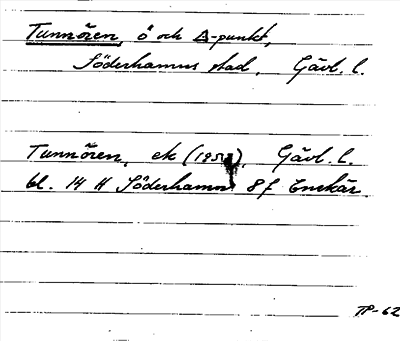 Tunnören, ö och Δ-punkt,
Söderhamns stad, Gävl. l.
Tunnören, ek (195 ), Gävl. l.
bl. 14 H Söderhamn 8f Enskär.
TP-62